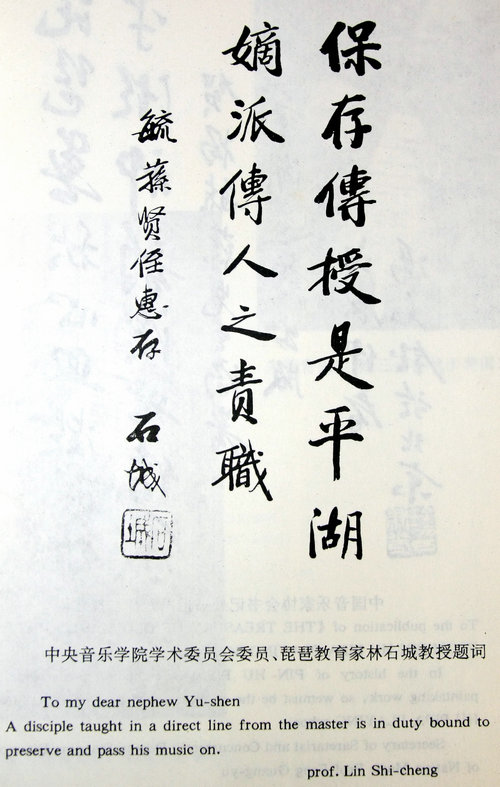 保存傳授是平湖
嫡派傳人之責職
毓蓀贤侄惠存 石城
中央音乐学院学术委员会委员、琵琶教育家林石城教授题词
To my dear nephew Yu-shen
A disciple taught in a direct line from the master is in duty bound to
preserve and pass his music on.
prof. Lin Shi-cheng